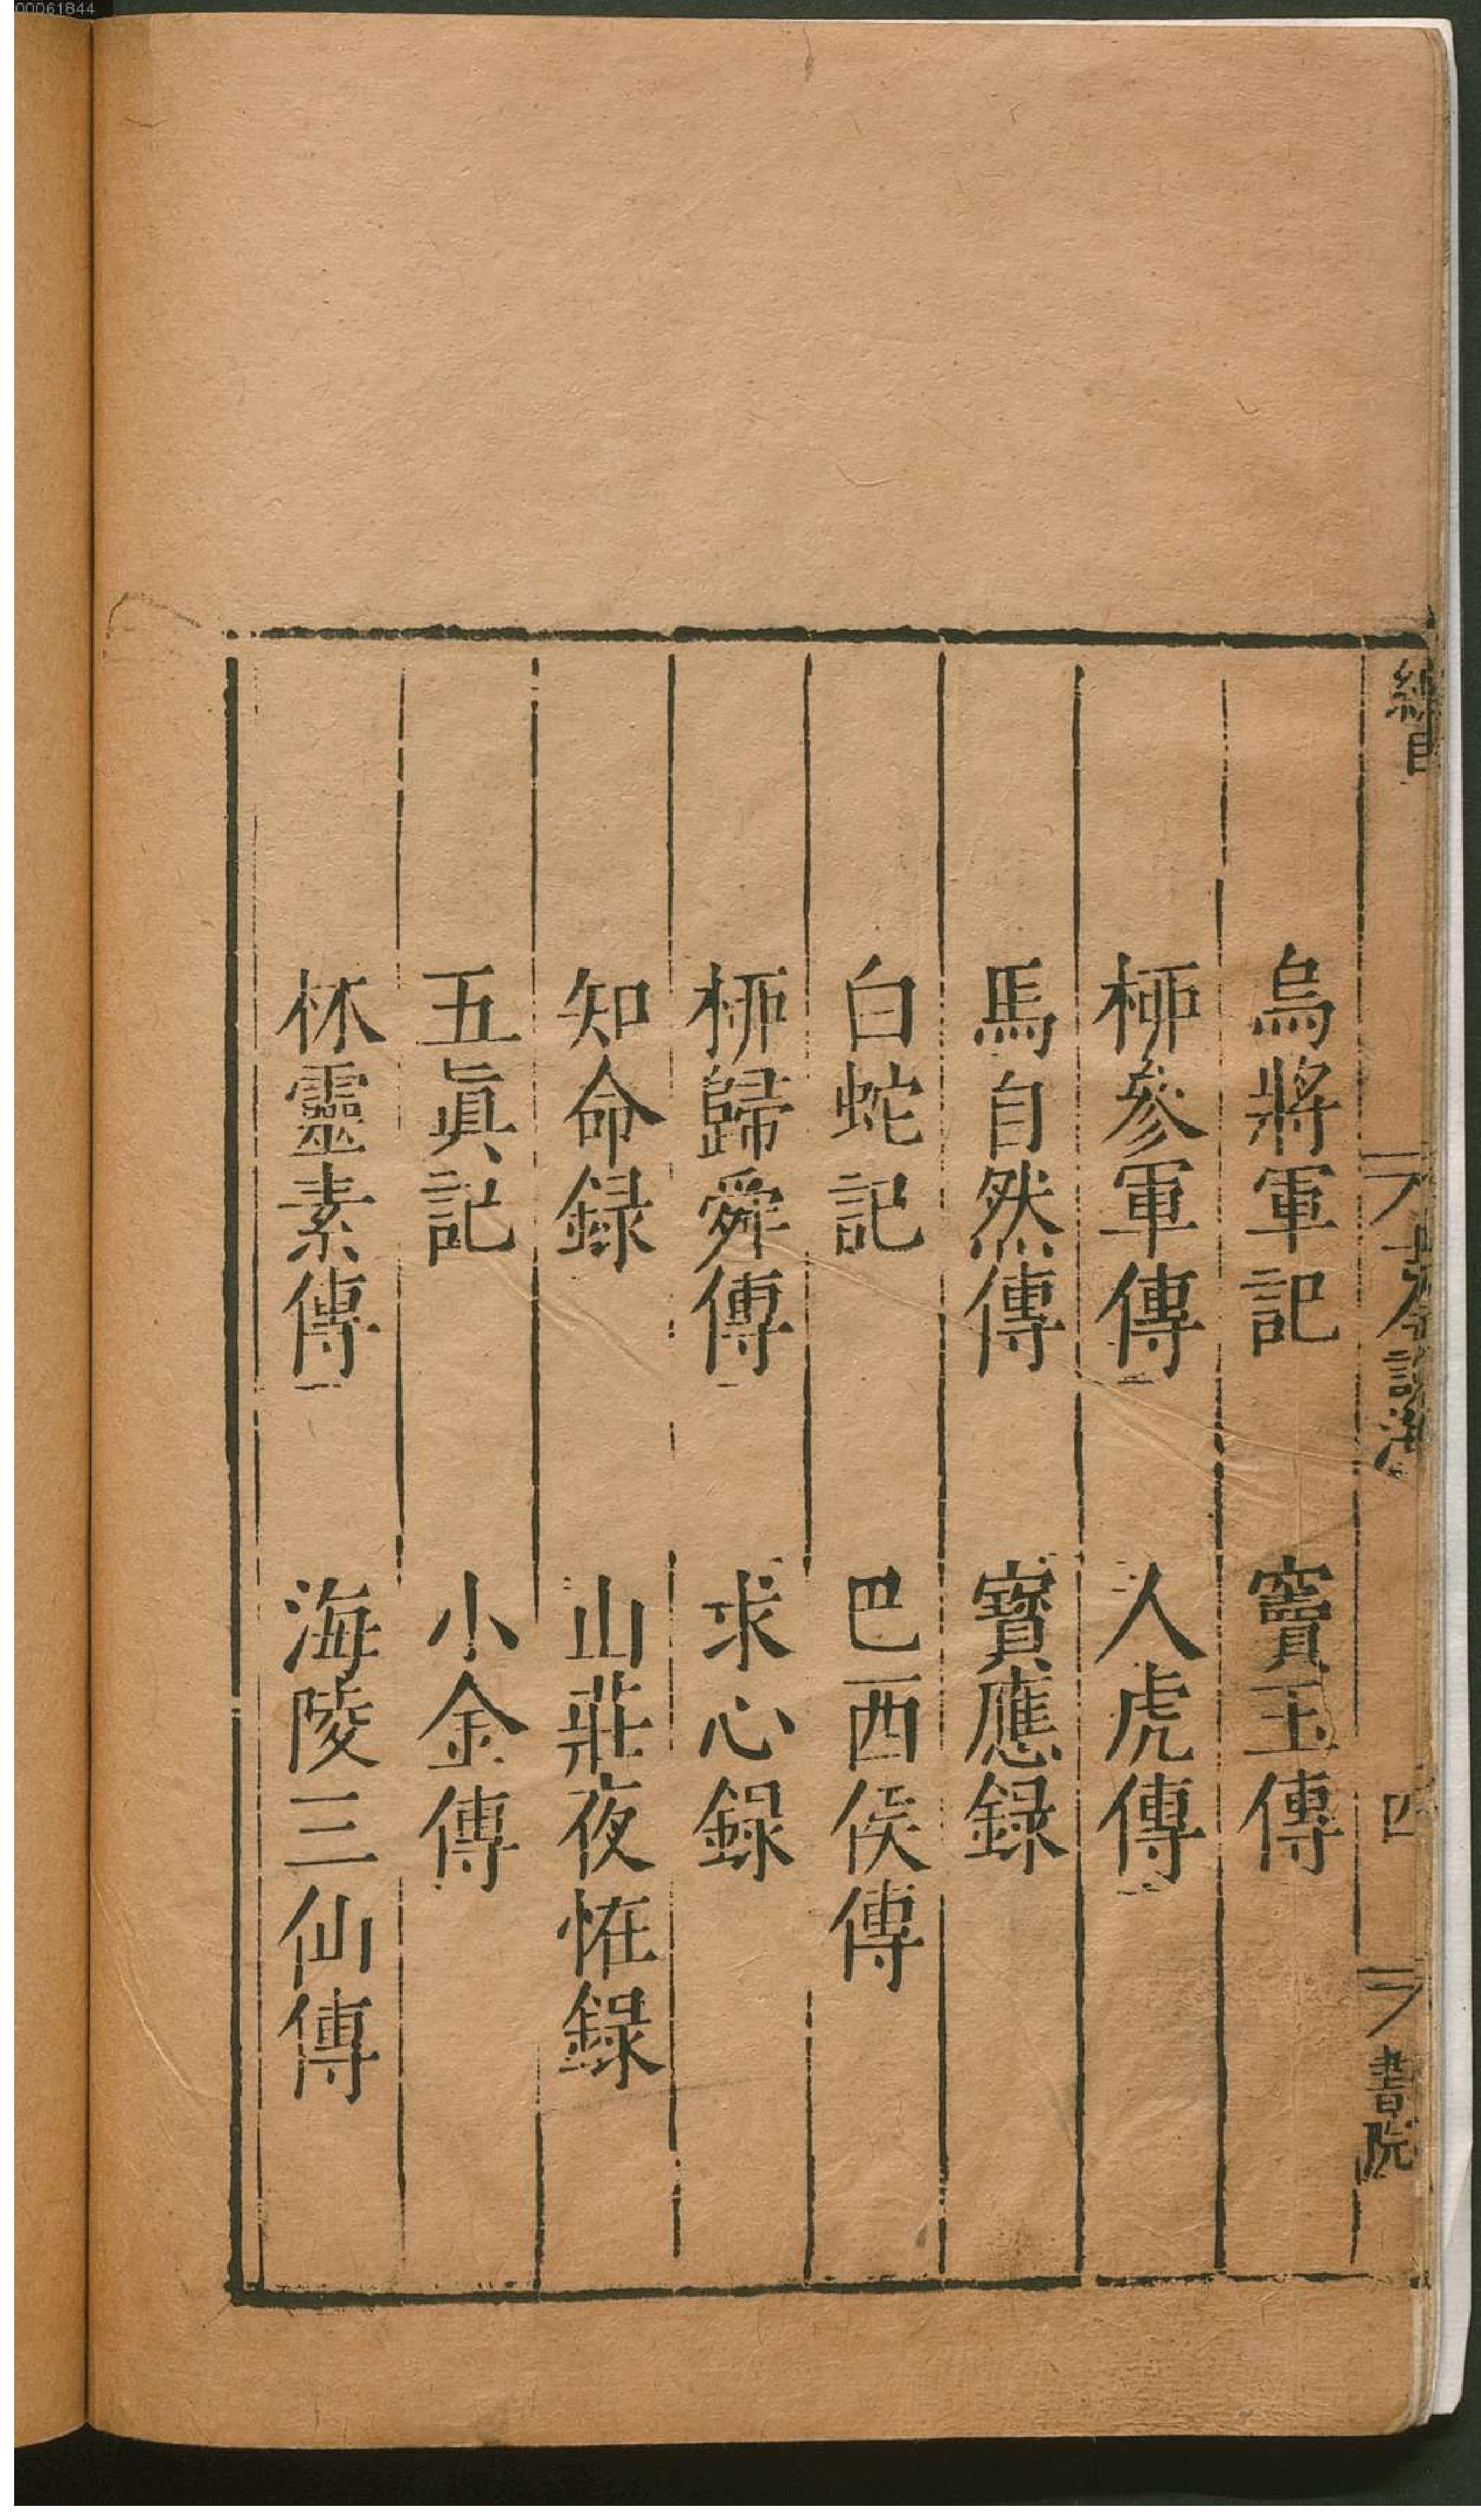 00061844
總目
古今說海
四
書院
烏將軍記　寶玉傳
桺參軍傳　人虎傳
馬自然傳　寶應録
白蛇記　巴西侯傳
桺歸舜傳　求心録
知命録　山莊夜恠録
五眞記　小金傳
林靈素傳　海陵三仙傳